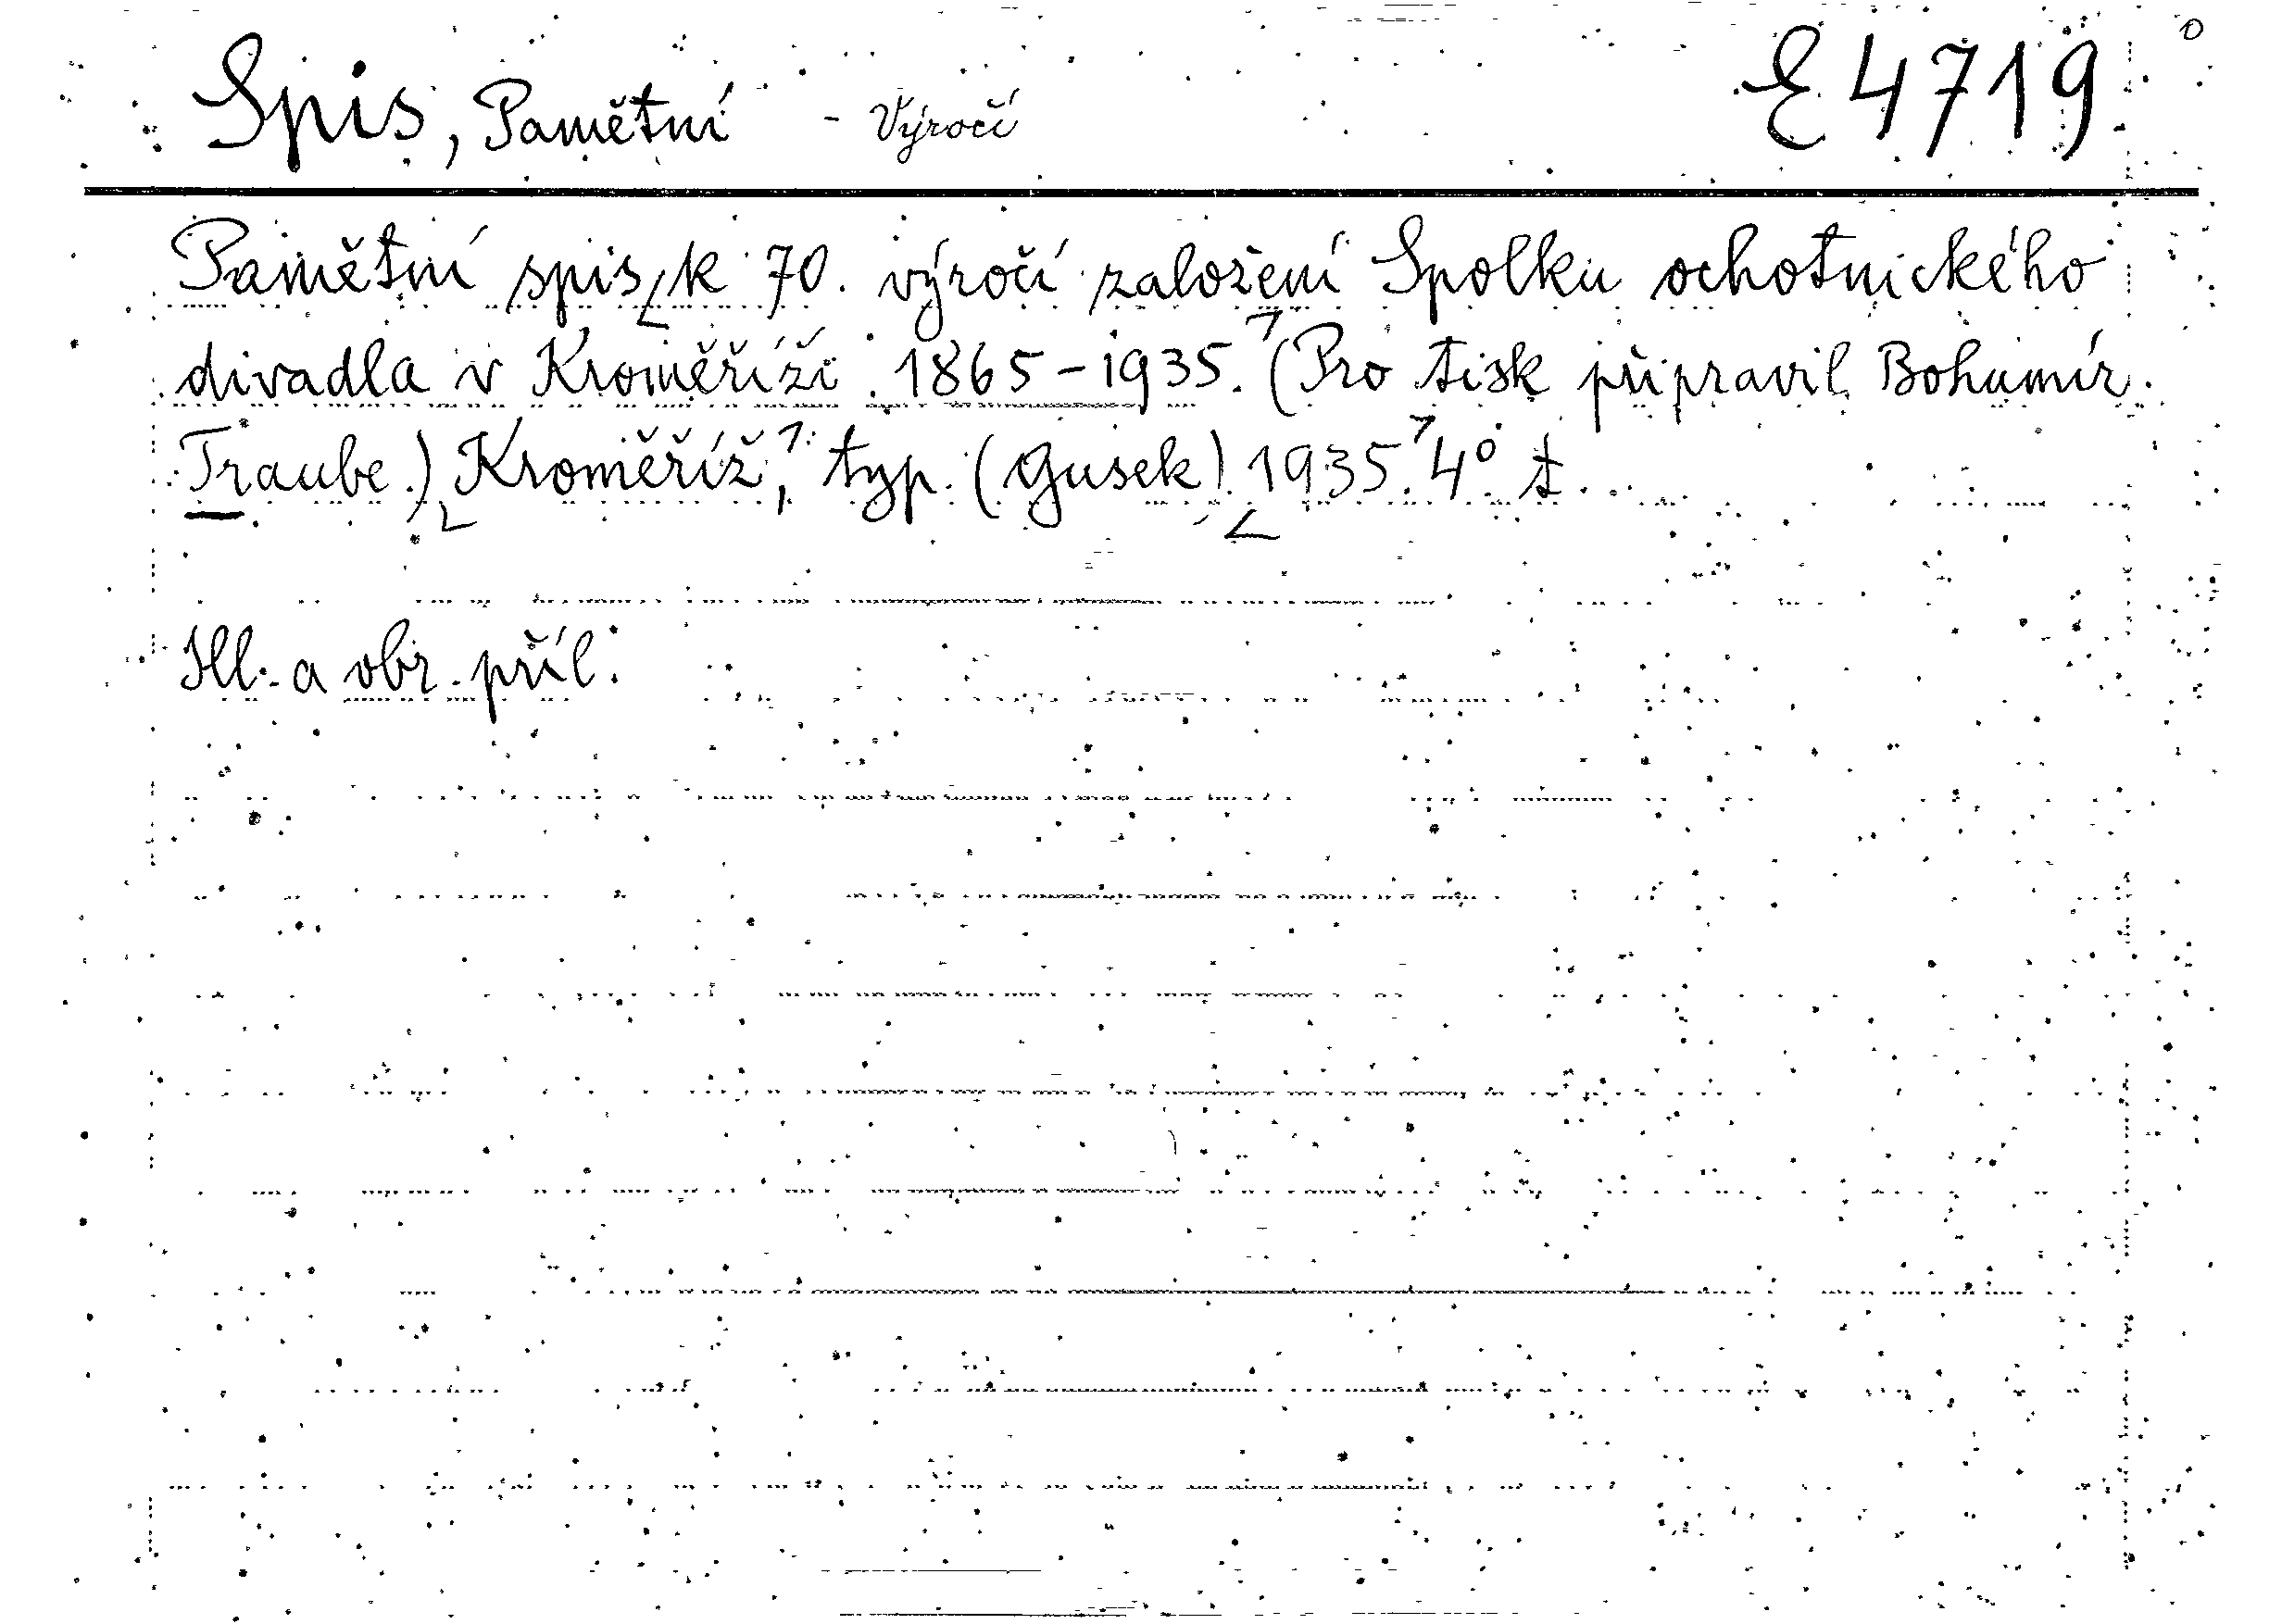 Spis, Pamětní - Výročí E 4719
Pamětní spis k 70. výročí založení Spolku ochotnického
divadla v Kroměříži 1865-1935. (Pro tisk připravil Bohumír
Traube.) Kroměříž, typ. (Gusek) 1935. 4° t.
Ill. a obr. příl.